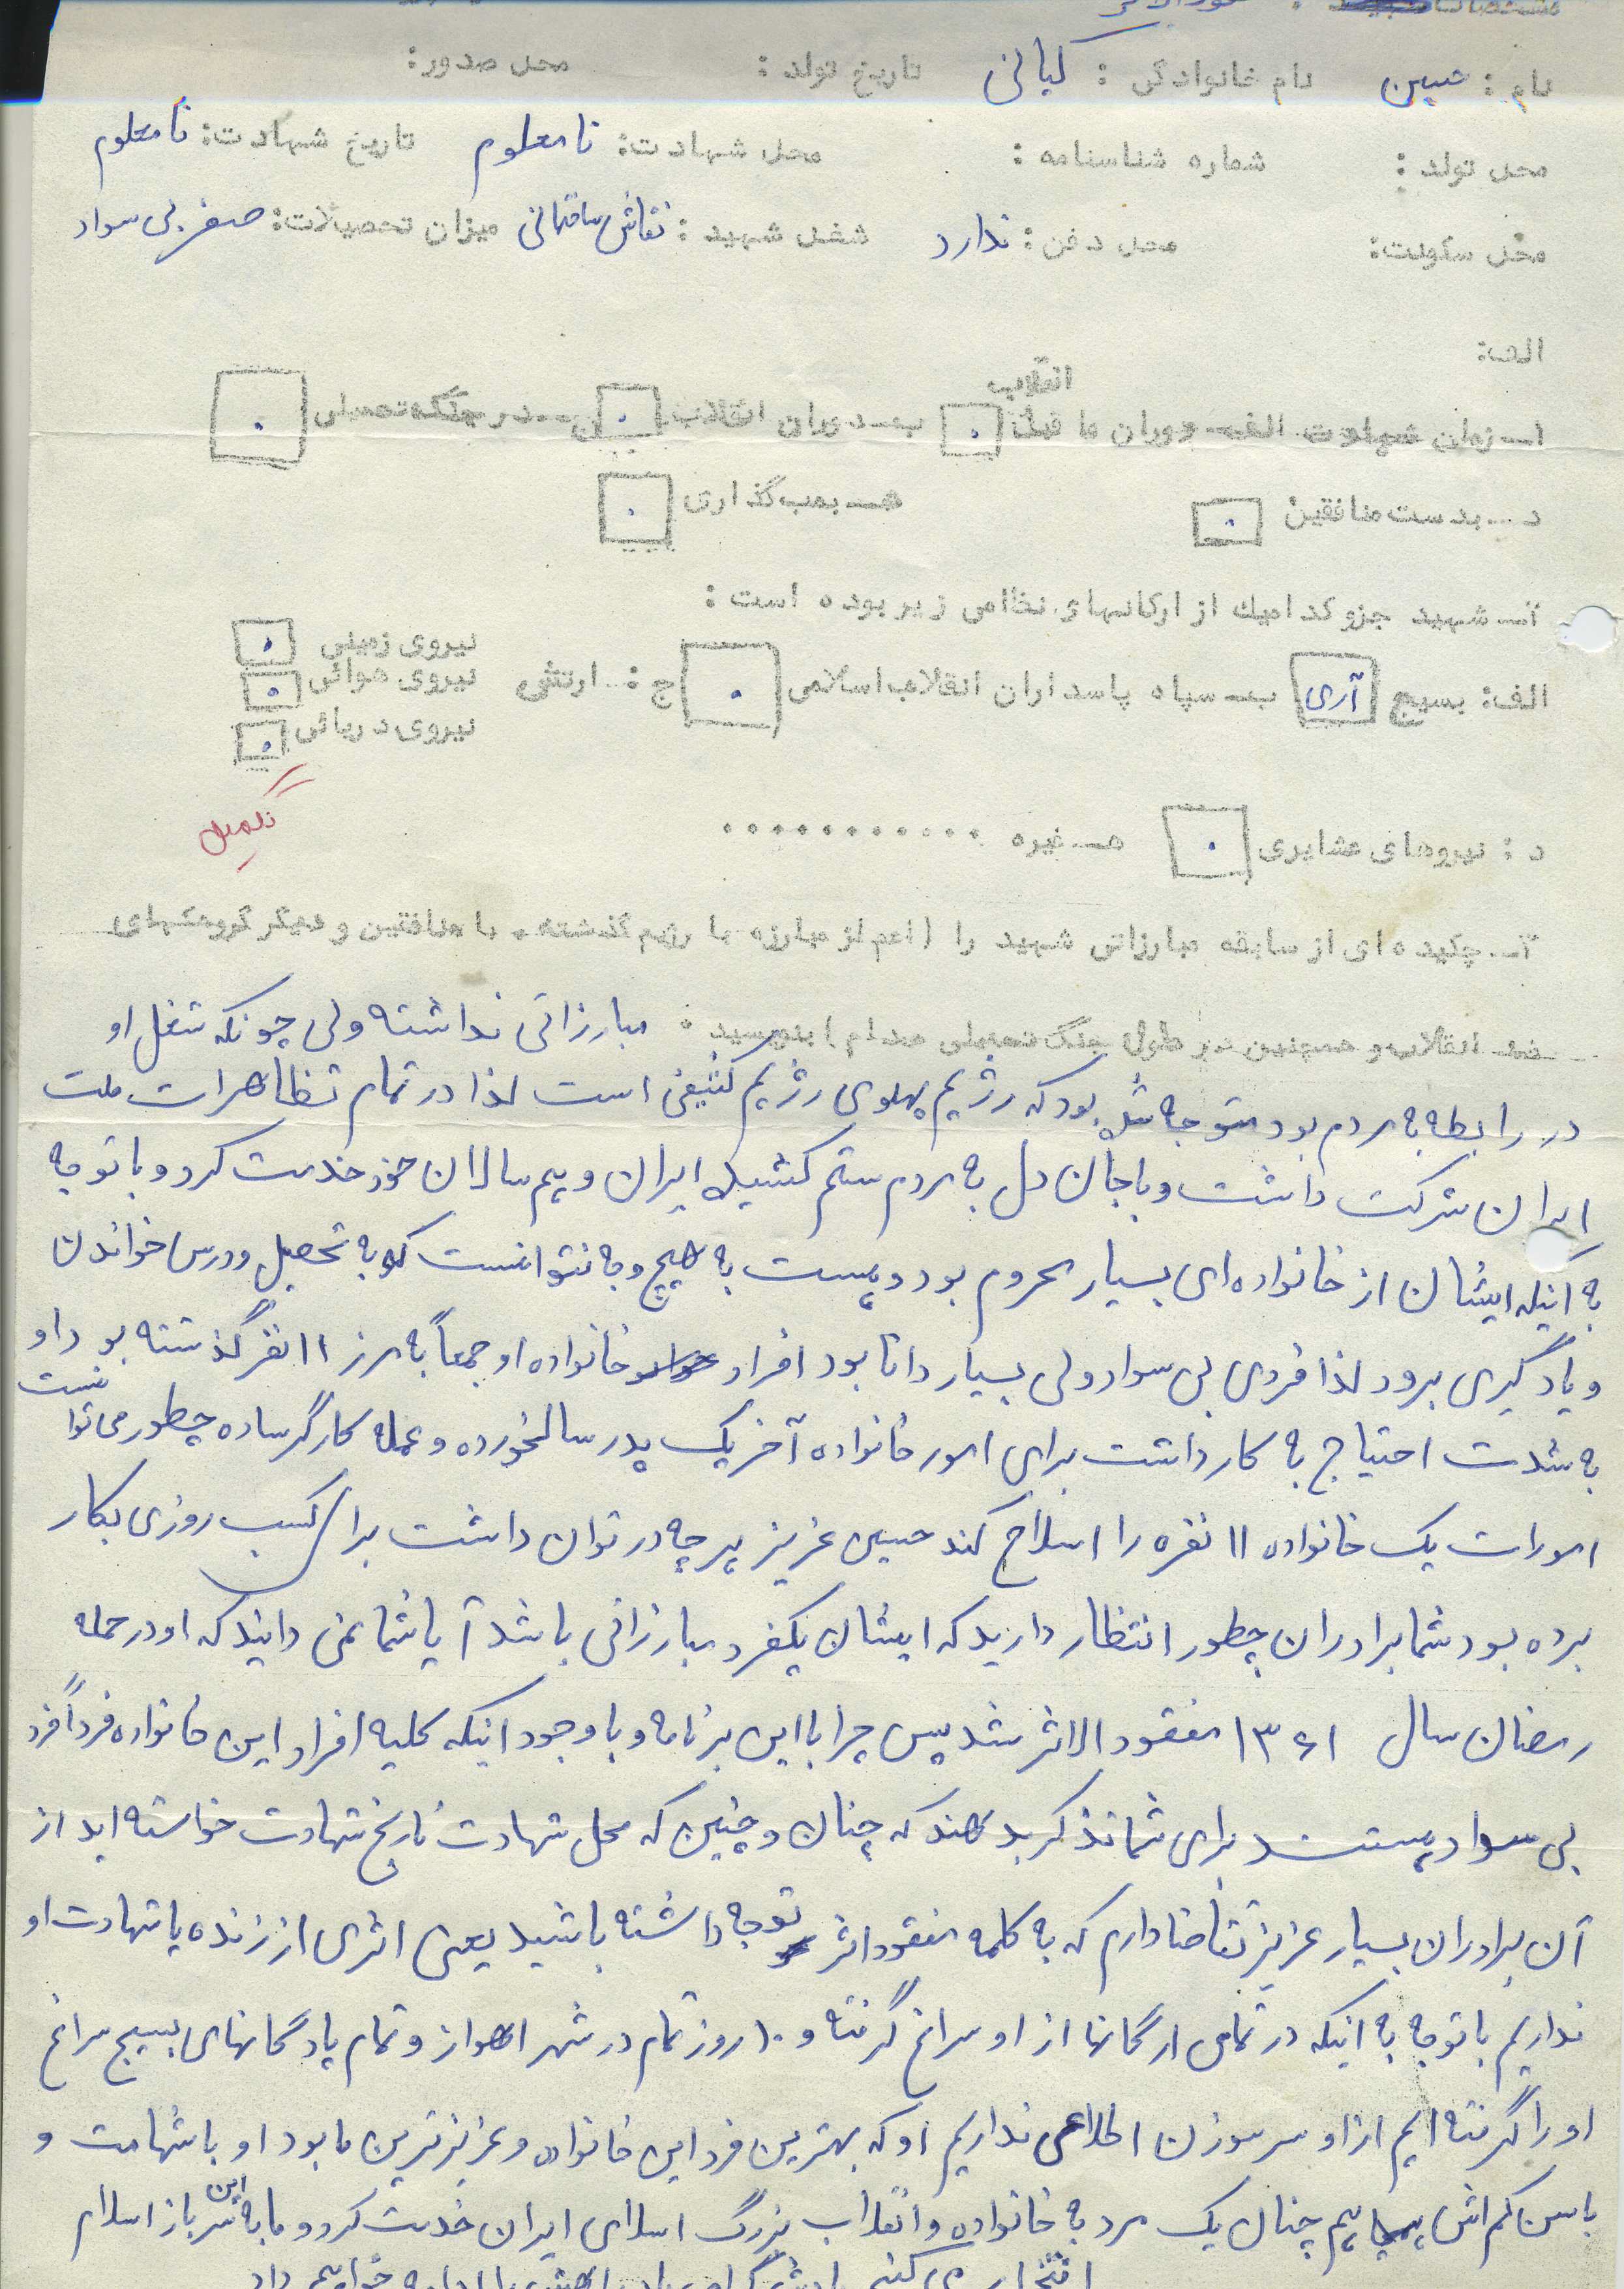 نام : حسین نام خانوادگی : کیانی تاریخ تولد : محل صدور:
محل تولد : شماره شناسنامه : محل شهادت: نامعلوم تاریخ شهادت: نامعلوم
محل سکونت: محل دفن: ندارد شغل شهید : نقاش ساختمانی میزان تحصیلات: صفر بی سواد
الف:
انقلاب
۱ـ زمان شهادت الف ـ دوران ما قبل ب ـ دوران انقلاب ج ـ در جنگ تحمیلی
د ـ بدست منافقین هـ ـ بمب گذاری
۲ـ شهید جزو کدامیک از ارگانهای نظامی زیر بوده است :
نیروی زمینی
الف: بسیج آری ب ـ سپاه پاسداران انقلاب اسلامی ج : ارتش نیروی هوائی
نیروی دریائی
تکمیل
د : نیروهای عشایری هـ ـ غیره ...........
۳ـ چکیده ای از سابقه مبارزاتی شهید را (اعم از مبارزه با رژیم گذشته ، با منافقین و دیگر گروهکهای
ضد انقلاب و همچنین در طول جنگ تحمیلی صدام) بنویسید . مبارزاتی نداشته ولی چونکه شغل او
در رابطه با مردم بود متوجه شده بود که رژیم پهلوی رژیم کثیفی است لذا در تمام تظاهرات ملت
ایران شرکت داشت و با جان دل به مردم ستم کشیده ایران و هم سالان خود خدمت کرد و با توجه
به اینکه ایشان از خانواده ای بسیار محروم بود و هست به هیچ وجه نتوانست که به تحصیل و درس خواندن
و یادگیری برود لذا فردی بی سواد ولی بسیار دانا بود افراد خانواده او جمعاً به مرز ۱۱ نفر گذشته بود او
به شدت احتیاج به کار داشت برای امور خانواده آخر یک پدر سالخورده و عمله کارگر ساده چطور می توانست
امورات یک خانواده ۱۱ نفره را اسلاح کند حسین عزیز هر چه در توان داشت برای کسب روزی بکار
برده بود شما برادران چطور انتظار دارید که ایشان یکفرد مبارزاتی باشد آیا شما نمی دانید که او در حمله
رمضان سال ۱۳۶۱ مفقودالاثر شد پس چرا با این برنامه و با وجود اینکه کلیه افراد این خانواده فرداً فرد
بی سواد هستند برای شما تذکر بدهند که چنان و چنین که محل شهادت تاریخ شهادت خواسته اید از
آن برادران بسیار عزیز تقاضا دارم که به کلمه مفقود اثر توجه داشته باشید یعنی اثری از زنده یا شهادت او
نداریم با توجه به اینکه در تمامی ارگانها از او سراغ گرفته و ۱۰ روز تمام در شهر اهواز و تمام پادگانهای بسیج سراغ
او را گرفته ایم از او سر سوزن اطلاعی نداریم او که بهترین فرد این خانواده و عزیزترین ما بود او با شهامت و
با سن کم اش هم چنان یک مرد به خانواده و انقلاب بزرگ اسلامی ایران خدمت کرد و ما به این سرباز اسلام
افتخار می کنیم